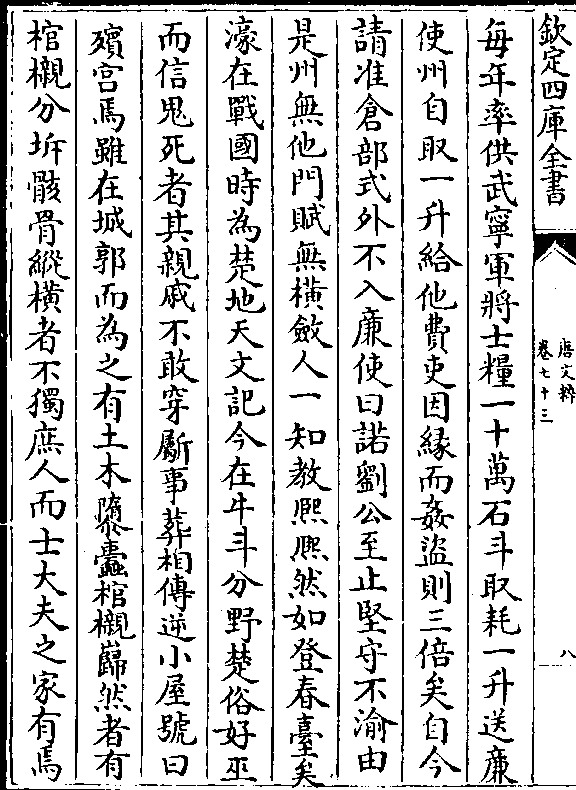 欽定四庫全書
唐文粹
卷七十三
八
每年率供武寧軍將士糧一十萬石斗取耗一升送廉
使州自取一升給他費吏因緣而姦盜則三倍矣自今
請准倉部式外不入廉使曰諾劉公至止堅守不渝由
是州無他門賦無橫斂人一知教熈熈然如登春臺矣
濠在戰國時為楚地天文記今在牛斗分野楚俗好巫
而信鬼死者其親戚不敢穿斸事葬相傳逆小屋號曰
殯宫焉雖在城郭而為之有土木隳蠹棺櫬巋然者有
棺櫬分坼骸骨縱橫者不獨庶人而士大夫之家有焉